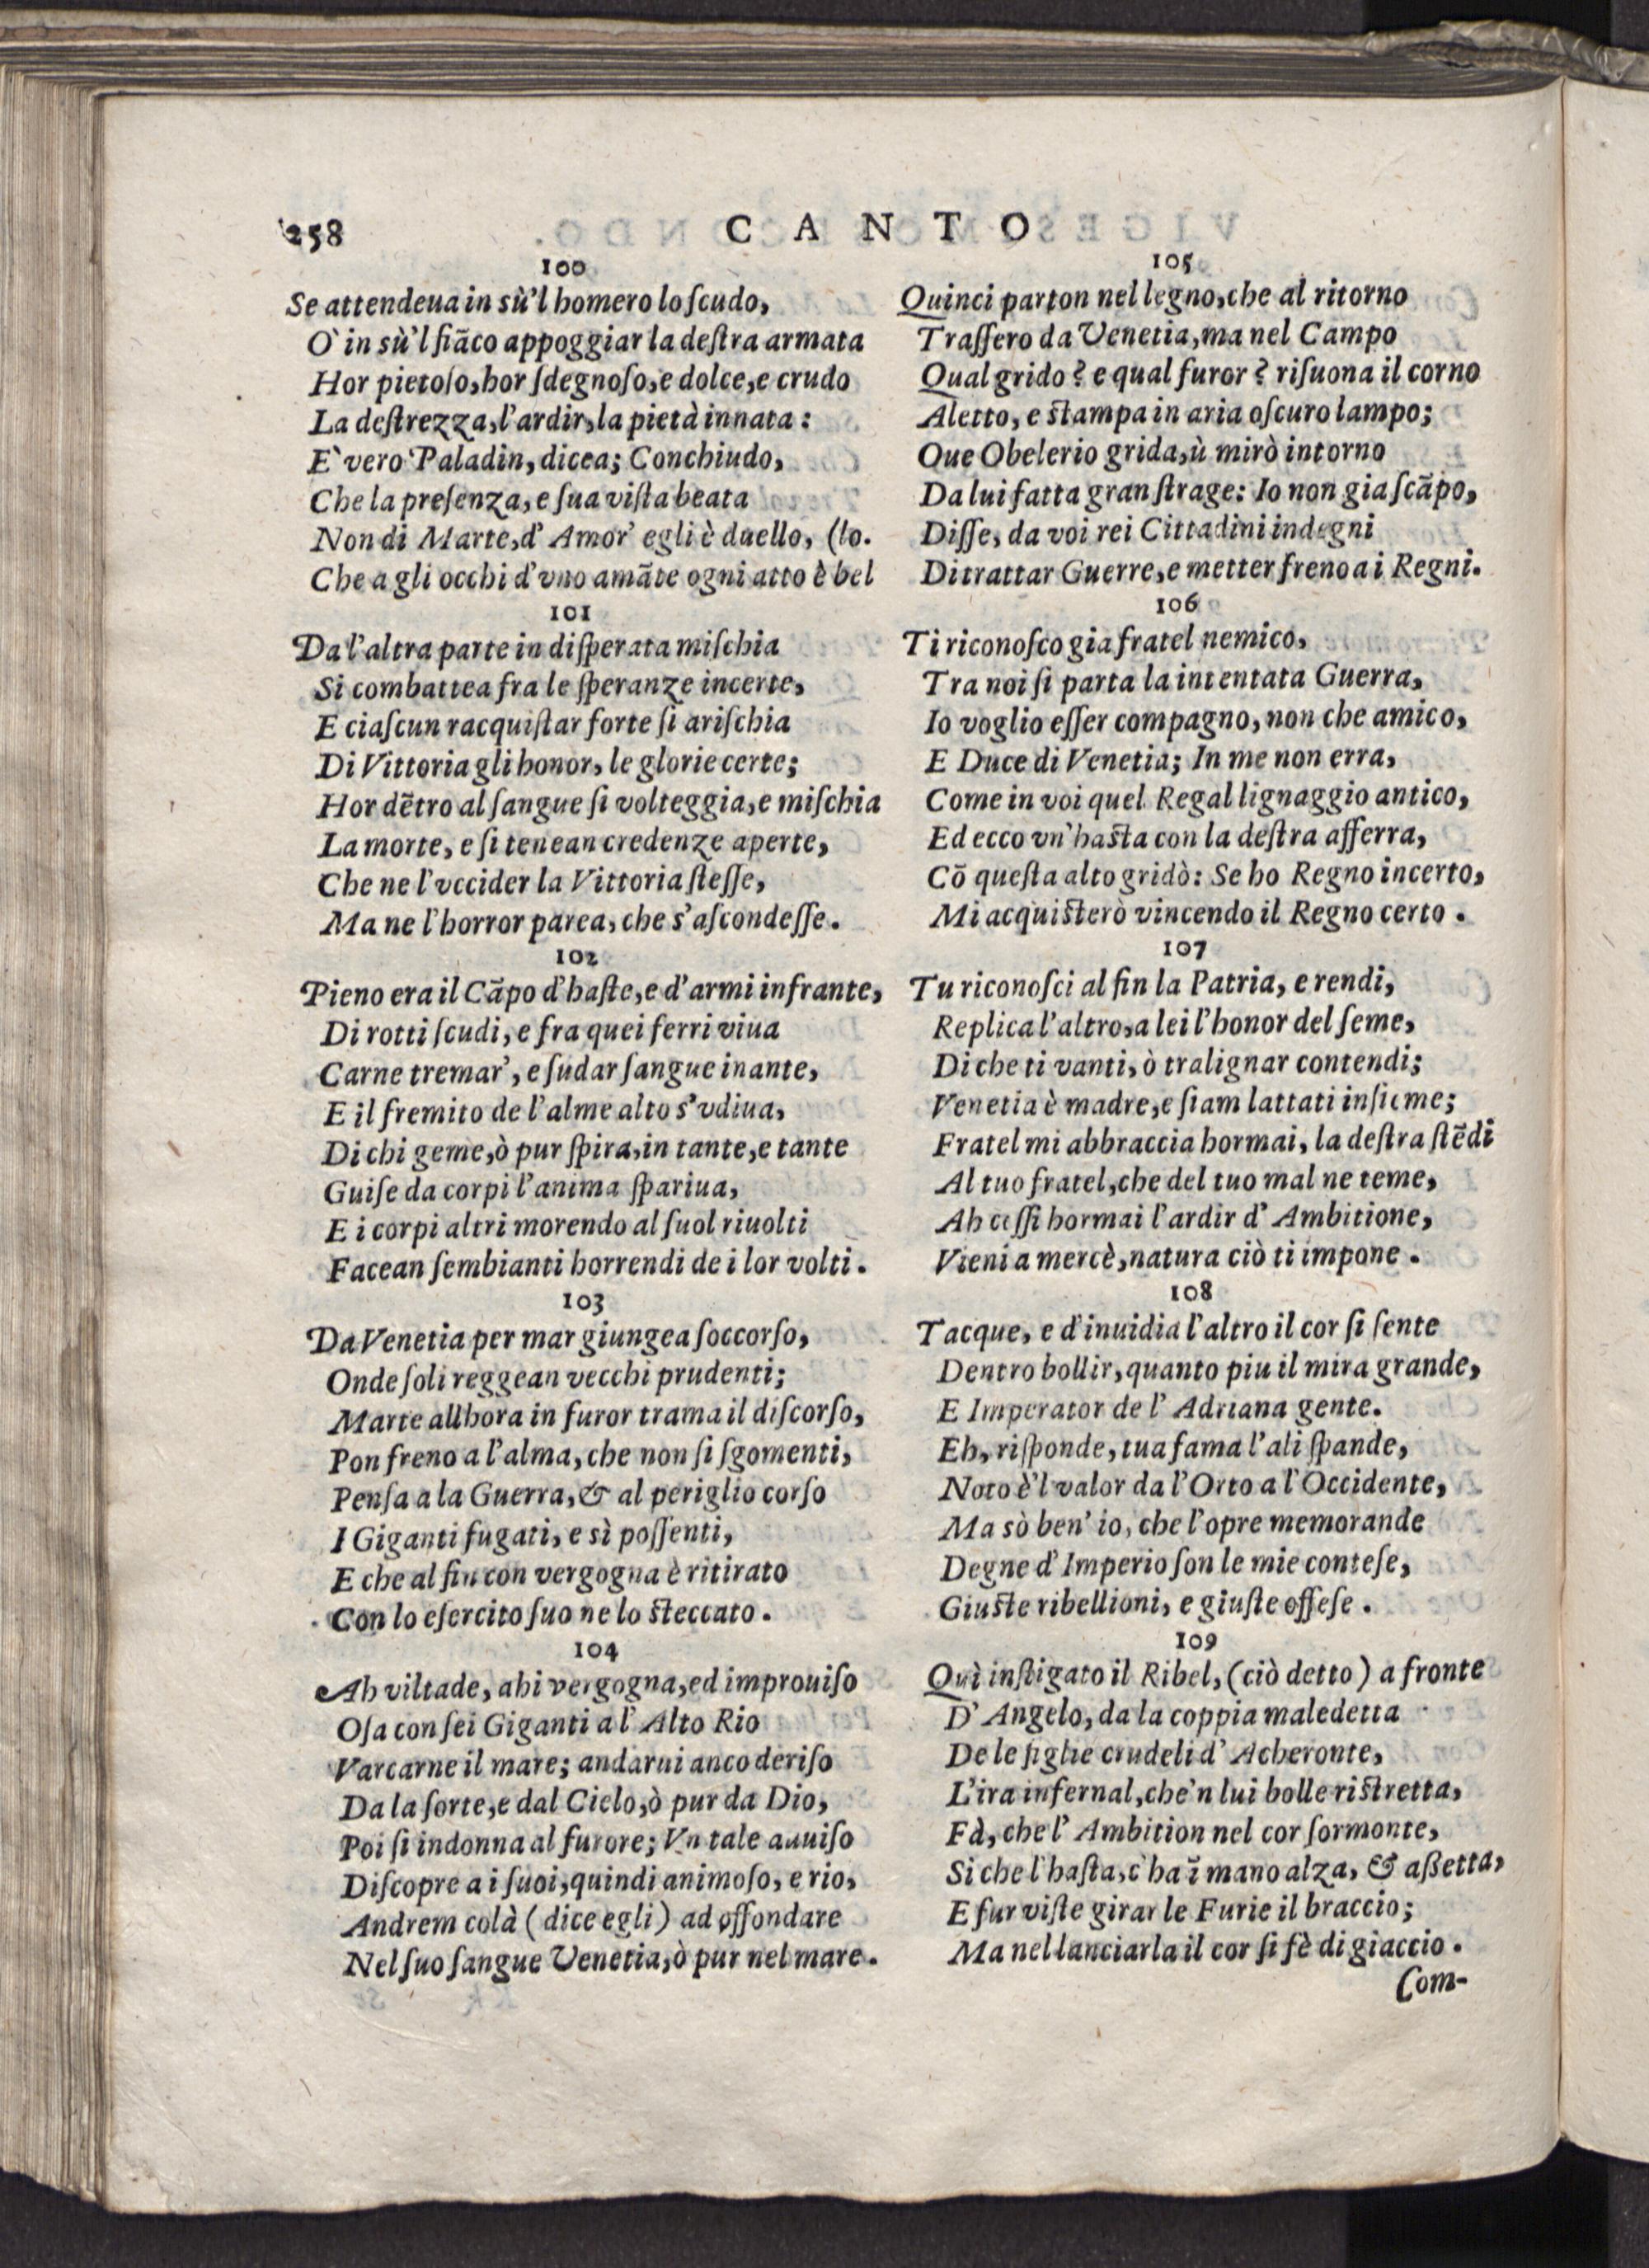 258
CANTO
100
Se attendeua in sù'l homero lo ſcudo,
O' in sù'l fiãco appoggiar la deſtra armata
Hor pietoſo, hor ſdegnoſo, e dolce, e crudo
La deſtrezza, l'ardir, la pietà innata:
E' vero Paladin, dicea; Conchiudo,
Che la preſenza, e ſua viſta beata
Non di Marte, d'Amor' egli è duello, (lo.
Che a gli occhi d'vno amãte ogni atto è bel
101
Da l'altra parte in diſperata miſchia
Si combattea fra le ſperanze incerte,
E ciaſcun racquiſtar forte ſi ariſchia
Di Vittoria gli honor, le glorie certe;
Hor dẽtro al ſangue ſi volteggia, e miſchia
La morte, e ſi tenean credenze aperte,
Che ne l'vccider la Vittoria ſteſſe,
Ma ne l'horror parea, che s'aſcondeſſe.
102
Pieno era il Cãpo d'haſte, e d'armi infrante,
Di rotti ſcudi, e fra quei ferri viua
Carne tremar', e ſudar ſangue inante,
E il fremito de l'alme alto s'vdiua,
Di chi geme, ò pur ſpira, in tante, e tante
Guiſe da corpi l'anima ſpariua,
E i corpi altri morendo al ſuol riuolti
Facean ſembianti horrendi de i lor volti.
103
Da Venetia per mar giungea ſoccorſo,
Onde ſoli reggean vecchi prudenti;
Marte allhora in furor trama il diſcorſo,
Pon freno a l'alma, che non ſi ſgomenti,
Penſa a la Guerra, & al periglio corſo
I Giganti fugati, e sì poſſenti,
E che al fin con vergogna è ritirato
Con lo eſercito ſuo ne lo ſteccato.
104
Ah viltade, ahi vergogna, ed improuiſo
Oſa con ſei Giganti a l'Alto Rio
Varcarne il mare; andarui anco deriſo
Da la ſorte, e dal Cielo, ò pur da Dio,
Poi ſi indonna al furore; Vn tale auuiſo
Diſcopre a i ſuoi, quindi animoſo, e rio,
Andrem colà (dice egli) ad offondare
Nel ſuo ſangue Venetia, ò pur nel mare.
105
Quinci parton nel legno, che al ritorno
Traſſero da Venetia, ma nel Campo
Qual grido? e qual furor? riſuona il corno
Aletto, e ſtampa in aria oſcuro lampo;
Oue Obelerio grida, ù mirò intorno
Da lui fatta gran ſtrage: Io non gia ſcãpo,
Diſſe, da voi rei Cittadini indegni
Di trattar Guerre, e metter freno a i Regni.
106
Ti riconoſco gia fratel nemico,
Tra noi ſi parta la intentata Guerra,
Io voglio eſſer compagno, non che amico,
E Duce di Venetia; In me non erra,
Come in voi quel Regal lignaggio antico,
Ed ecco vn'haſta con la deſtra afferra,
Cõ queſta alto gridò: Se ho Regno incerto,
Mi acquiſterò vincendo il Regno certo.
107
Tu riconoſci al fin la Patria, e rendi,
Replica l'altro, a lei l'honor del ſeme,
Di che ti vanti, ò tralignar contendi;
Venetia è madre, e ſiam lattati inſieme;
Fratel mi abbraccia hormai, la deſtra ſtẽdi
Al tuo fratel, che del tuo mal ne teme,
Ah ceſſi hormai l'ardir d'Ambitione,
Vieni a mercè, natura ciò ti impone.
108
Tacque, e d'inuidia l'altro il cor ſi ſente
Dentro bollir, quanto piu il mira grande,
E Imperator de l'Adriana gente.
Eh, riſponde, tua fama l'ali ſpande,
Noto è'l valor da l'Orto a l'Occidente,
Ma sò ben' io, che l'opre memorande
Degne d'Imperio ſon le mie conteſe,
Giuſte ribellioni, e giuſte offeſe.
109
Quì inſtigato il Ribel, (ciò detto) a fronte
D'Angelo, da la coppia maledetta
De le figlie crudeli d'Acheronte,
L'ira infernal, che'n lui bolle riſtretta,
Fà, che l'Ambition nel cor ſormonte,
Si che l'haſta, c'ha ĩ mano alza, & aßetta,
E fur viſte girar le Furie il braccio;
Ma nel lanciarla il cor ſi fè di giaccio.
Com-